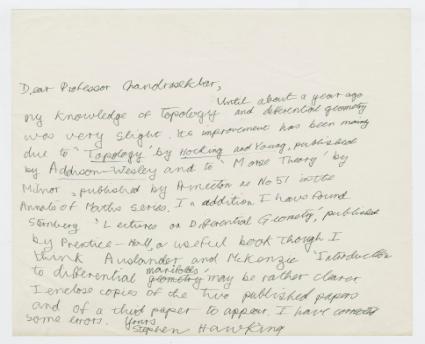 Dear Professor Chandrasekhar,
Until about a year ago
my knowledge of Topology and differential geometry
was very slight. Its improvement has been mainly
due to "Topology" by Hocking and Young, published
by Addison-Wesley and to "Morse Theory" by
Milnor, published by Princeton as No 51 in the
Annals of Maths series. In addition I have found
Sternberg 'Lectures on Differential Geometry', published
by Prentice-Hall, a useful book though I
think Auslander and McKenzie 'Introduction
to differential manifolds' geometry may be rather clearer
I enclose copies of the two published papers
and of a third paper to appear. I have corrected
some errors. Yours
Stephen Hawking